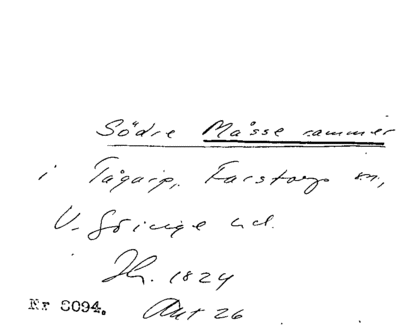 Södre Måsse rammer
i Tågarp, Farstorp sn,
V. Göinge hd.
1824
Nr 8094. Akt 26